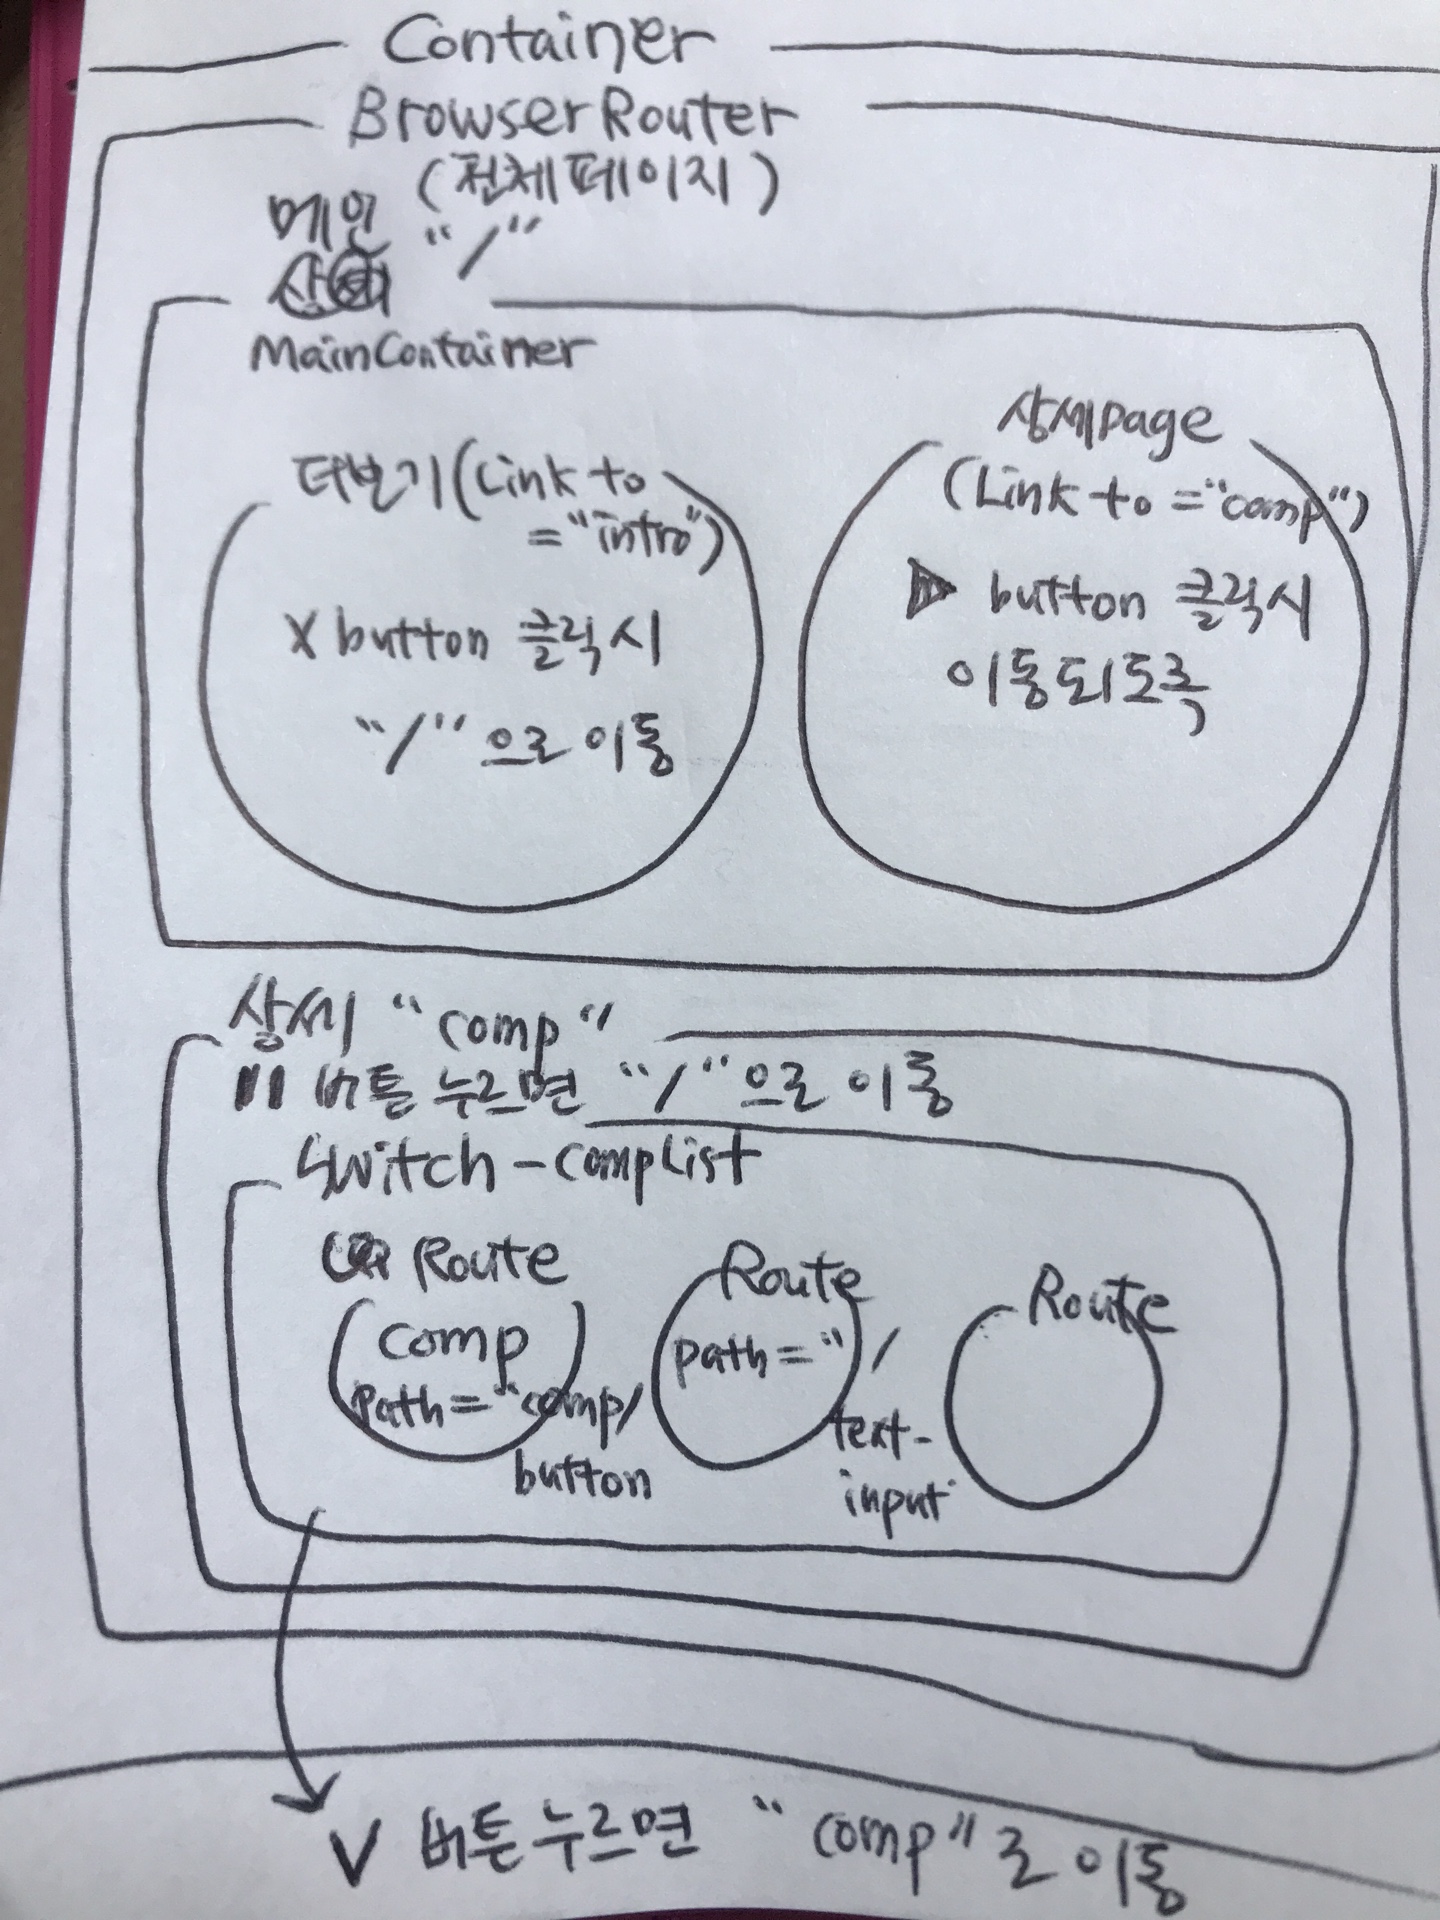 Container
BrowserRouter
(전체페이지)
메인 "/"
MainContainer
더보기(Link to
="intro")
X button 클릭시
"/"으로 이동
상세page
(Link to ="comp")
▶ button 클릭시
이동되도록
상세 "comp"
II 버튼 누르면 "/"으로 이동
Switch-compList
Route
comp
path="comp/
button
Route
path="/
text-
input
Route
V 버튼 누르면 "comp"로 이동